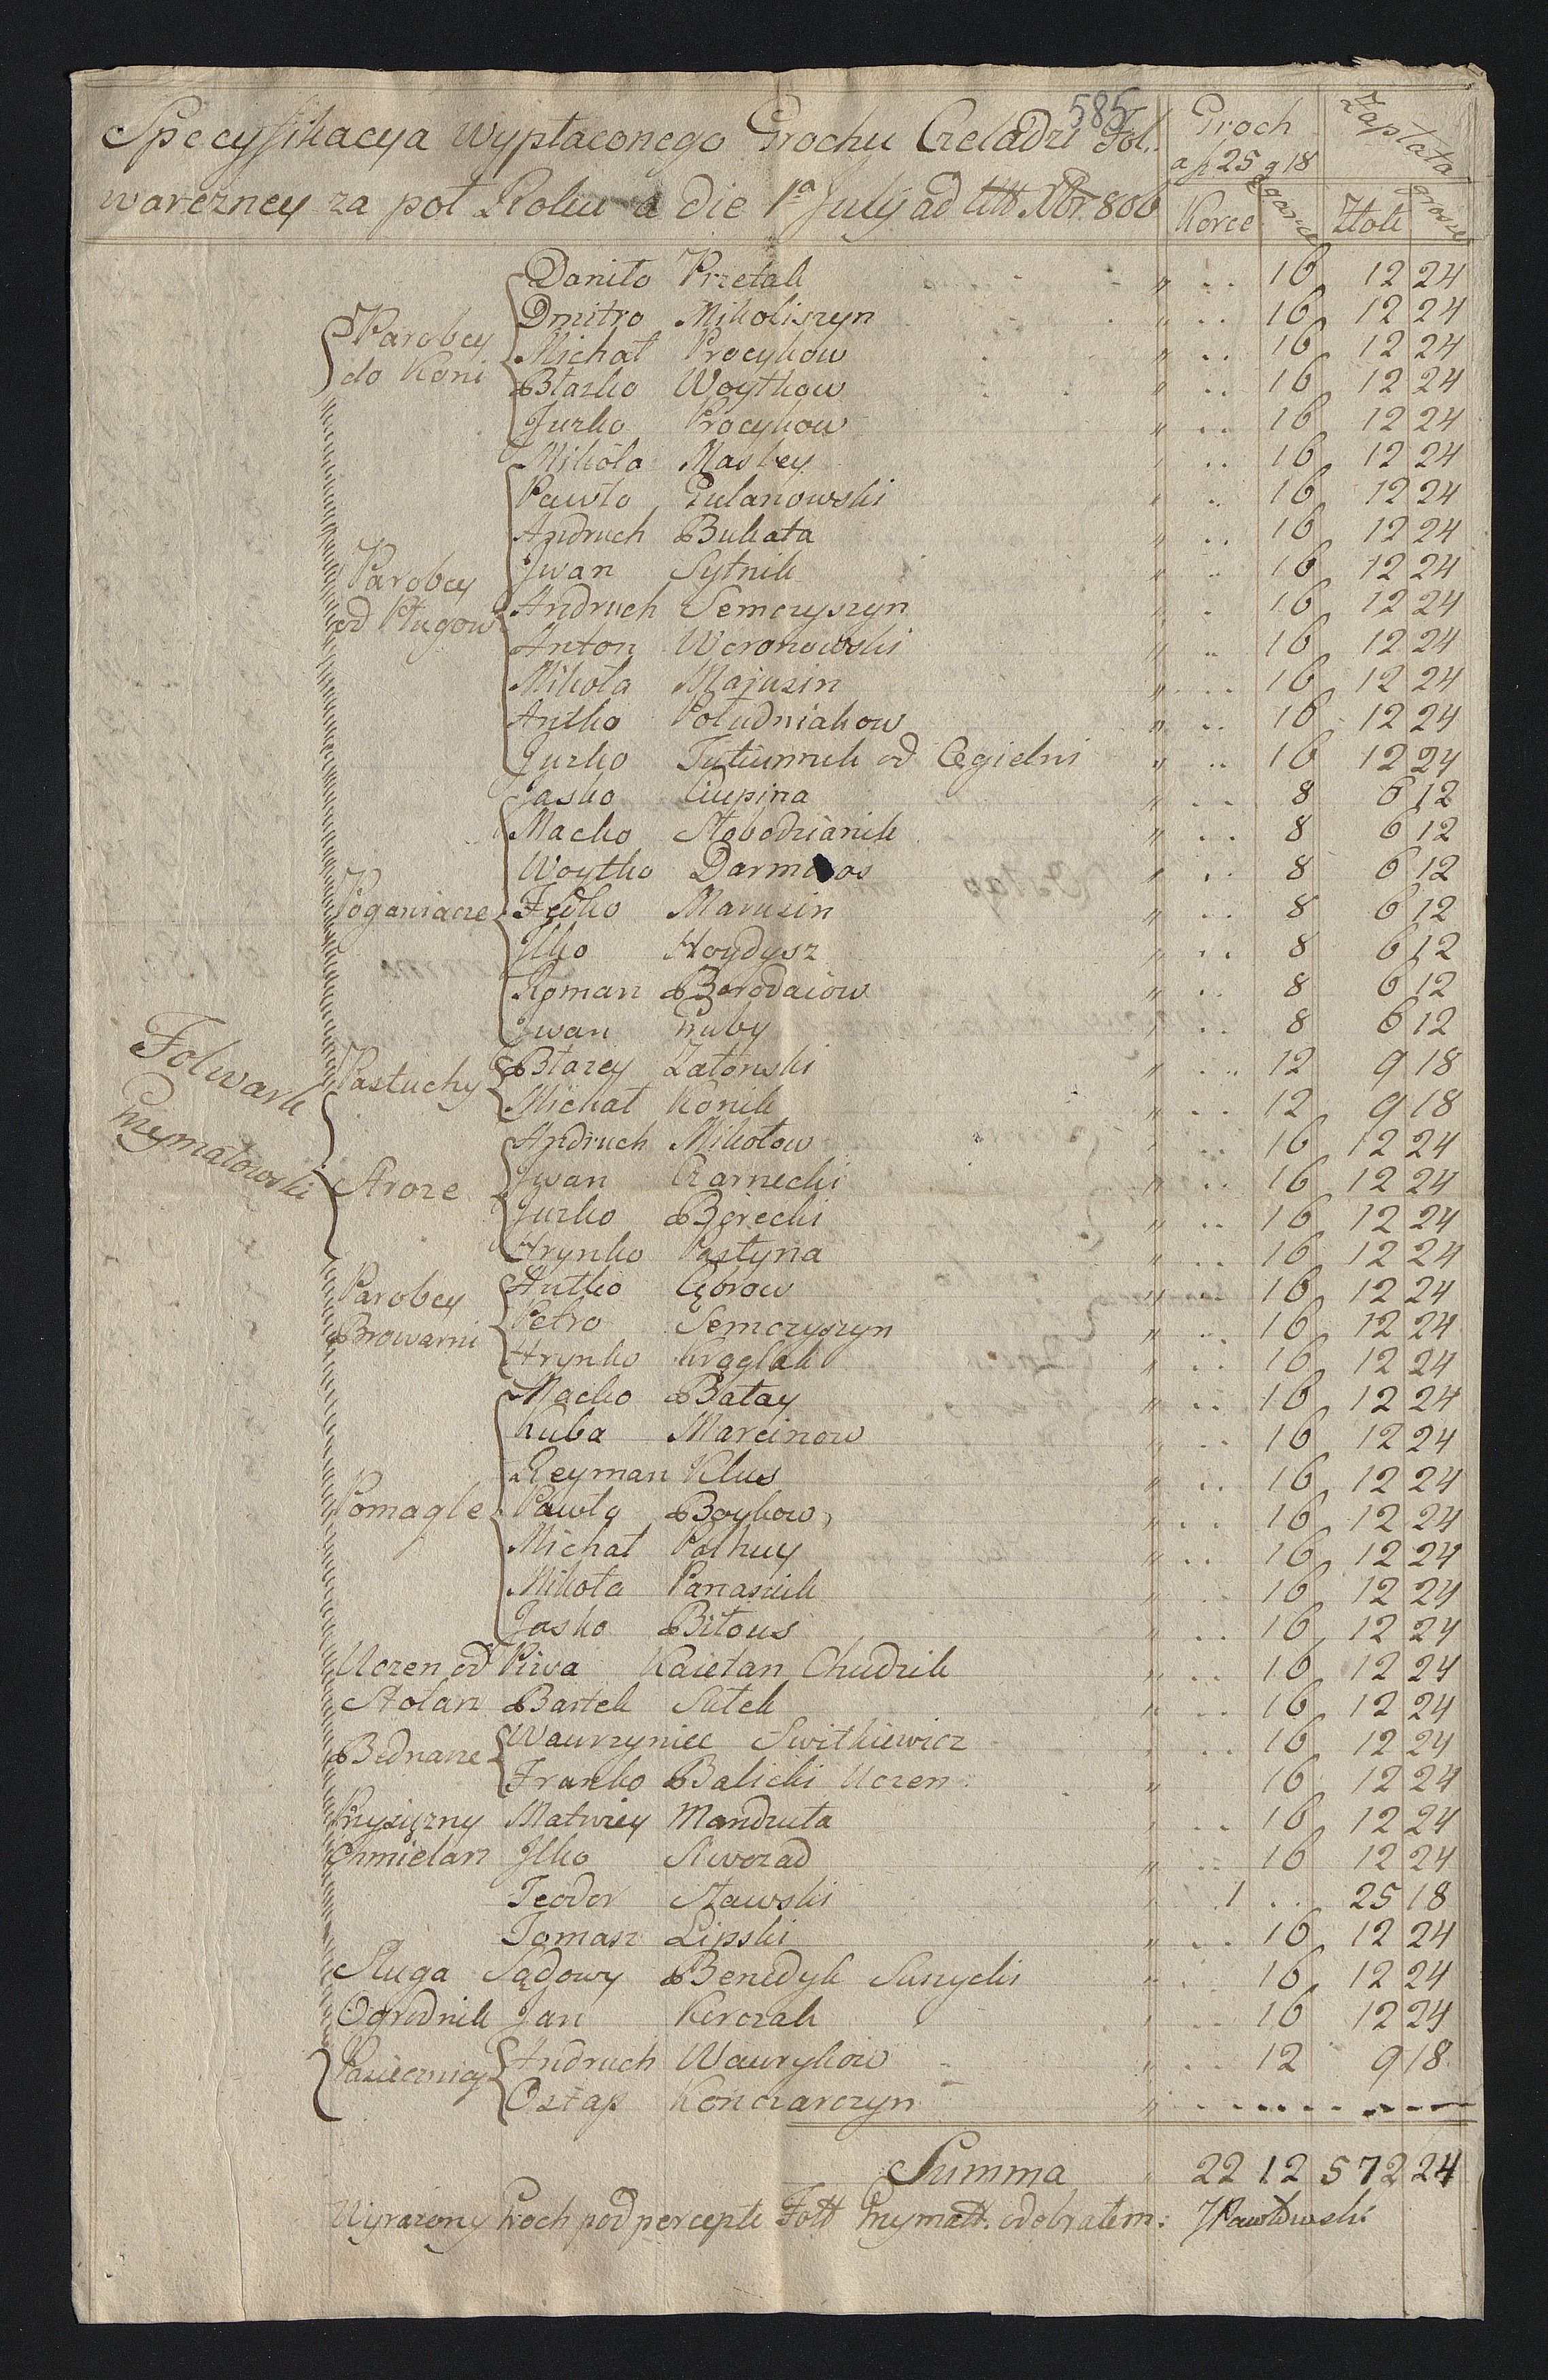 585
Specyfikacya wypłaconego Grochu Czeladzi Fol:
warczney za poł Roku a die 1ᵃ July ad Ult Xbr 806
Groch
a f 25 g 18
Zapłata
Korce garnce Złote grosze
Folwark
Przymałowski
Parobcy
do Koni
Daniło Przetak " .. 16 12 24
Dmitro Mikoliszyn " .. 16 12 24
Michał Procykow " .. 16 12 24
Błażko Woytkow " .. 16 12 24
Jurko Procykow " .. 16 12 24
Parobcy
od Pługow
Mikoła Maskey " .. 16 12 24
Pawło Gulanowski " .. 16 12 24
Andruch Bukata " .. 16 12 24
Jwan Sytnik " .. 16 12 24
Andruch Semczyszyn " .. 16 12 24
Anton Woronowski " .. 16 12 24
Mikoła Majuzin " .. 16 12 24
Antko Południakow " .. 16 12 24
Jurko Tutiunnik od Cegielni " .. 16 12 24
Poganiacze
Jasko Ciupina " .. 8 6 12
Macko Słobodzianik " .. 8 6 12
Woytko Darmoros " .. 8 6 12
Fedko Maruzin " .. 8 6 12
Jlko Hoydysz " .. 8 6 12
Roman Borodaiow " .. 8 6 12
Jwan Huby " .. 8 6 12
Pastuchy
Błazey Zatoński " .. 12 9 18
Michał Konik " .. 12 9 18
Stroze
Andruch Mikołow " .. 16 12 24
Jwan Czarnecki " .. 16 12 24
Jurko Borecki " .. 16 12 24
Hrynko Pastyna " .. 16 12 24
Parobcy
Browarni
Antko Cebrow " .. 16 12 24
Petro Semczyszyn " .. 16 12 24
Hrynko Kraglak " .. 16 12 24
Pomagle
Macko Bałay " .. 16 12 24
Kuba Marcinow " .. 16 12 24
Reyman Klus " .. 16 12 24
Pawło Boykow " .. 16 12 24
Michał Pałhuy " .. 16 12 24
Mikoła Panasiuk " .. 16 12 24
Jasko Biłous " .. 16 12 24
Uczen od Piwa Kaietan Chudzik " .. 16 12 24
Stolarz Bartek Sutek " .. 16 12 24
Bednarze
Wawrzyniec Switkiewicz " .. 16 12 24
Franko Balicki Uczen " 16 12 24
Przysiężny Matwiey Mandzuta " .. 16 12 24
Chmielarz Jlko Skworad " .. 16 12 24
Teodor Sławski " 1 .. 25 18
Tomasz Lipski " .. 16 12 24
Sługa Sądowy Benedyk Surycki " .. 16 12 24
Ogrodnik Jan Korczak " .. 16 12 24
Pasiecznicy
Andruch Wawrykow " .. 12 9 18
Ostap Konczarczyn "
Summa " 22 12 572 24
Wyrazony Groch pod percepte Folł Przymałł. odebrałem: JPawłowski